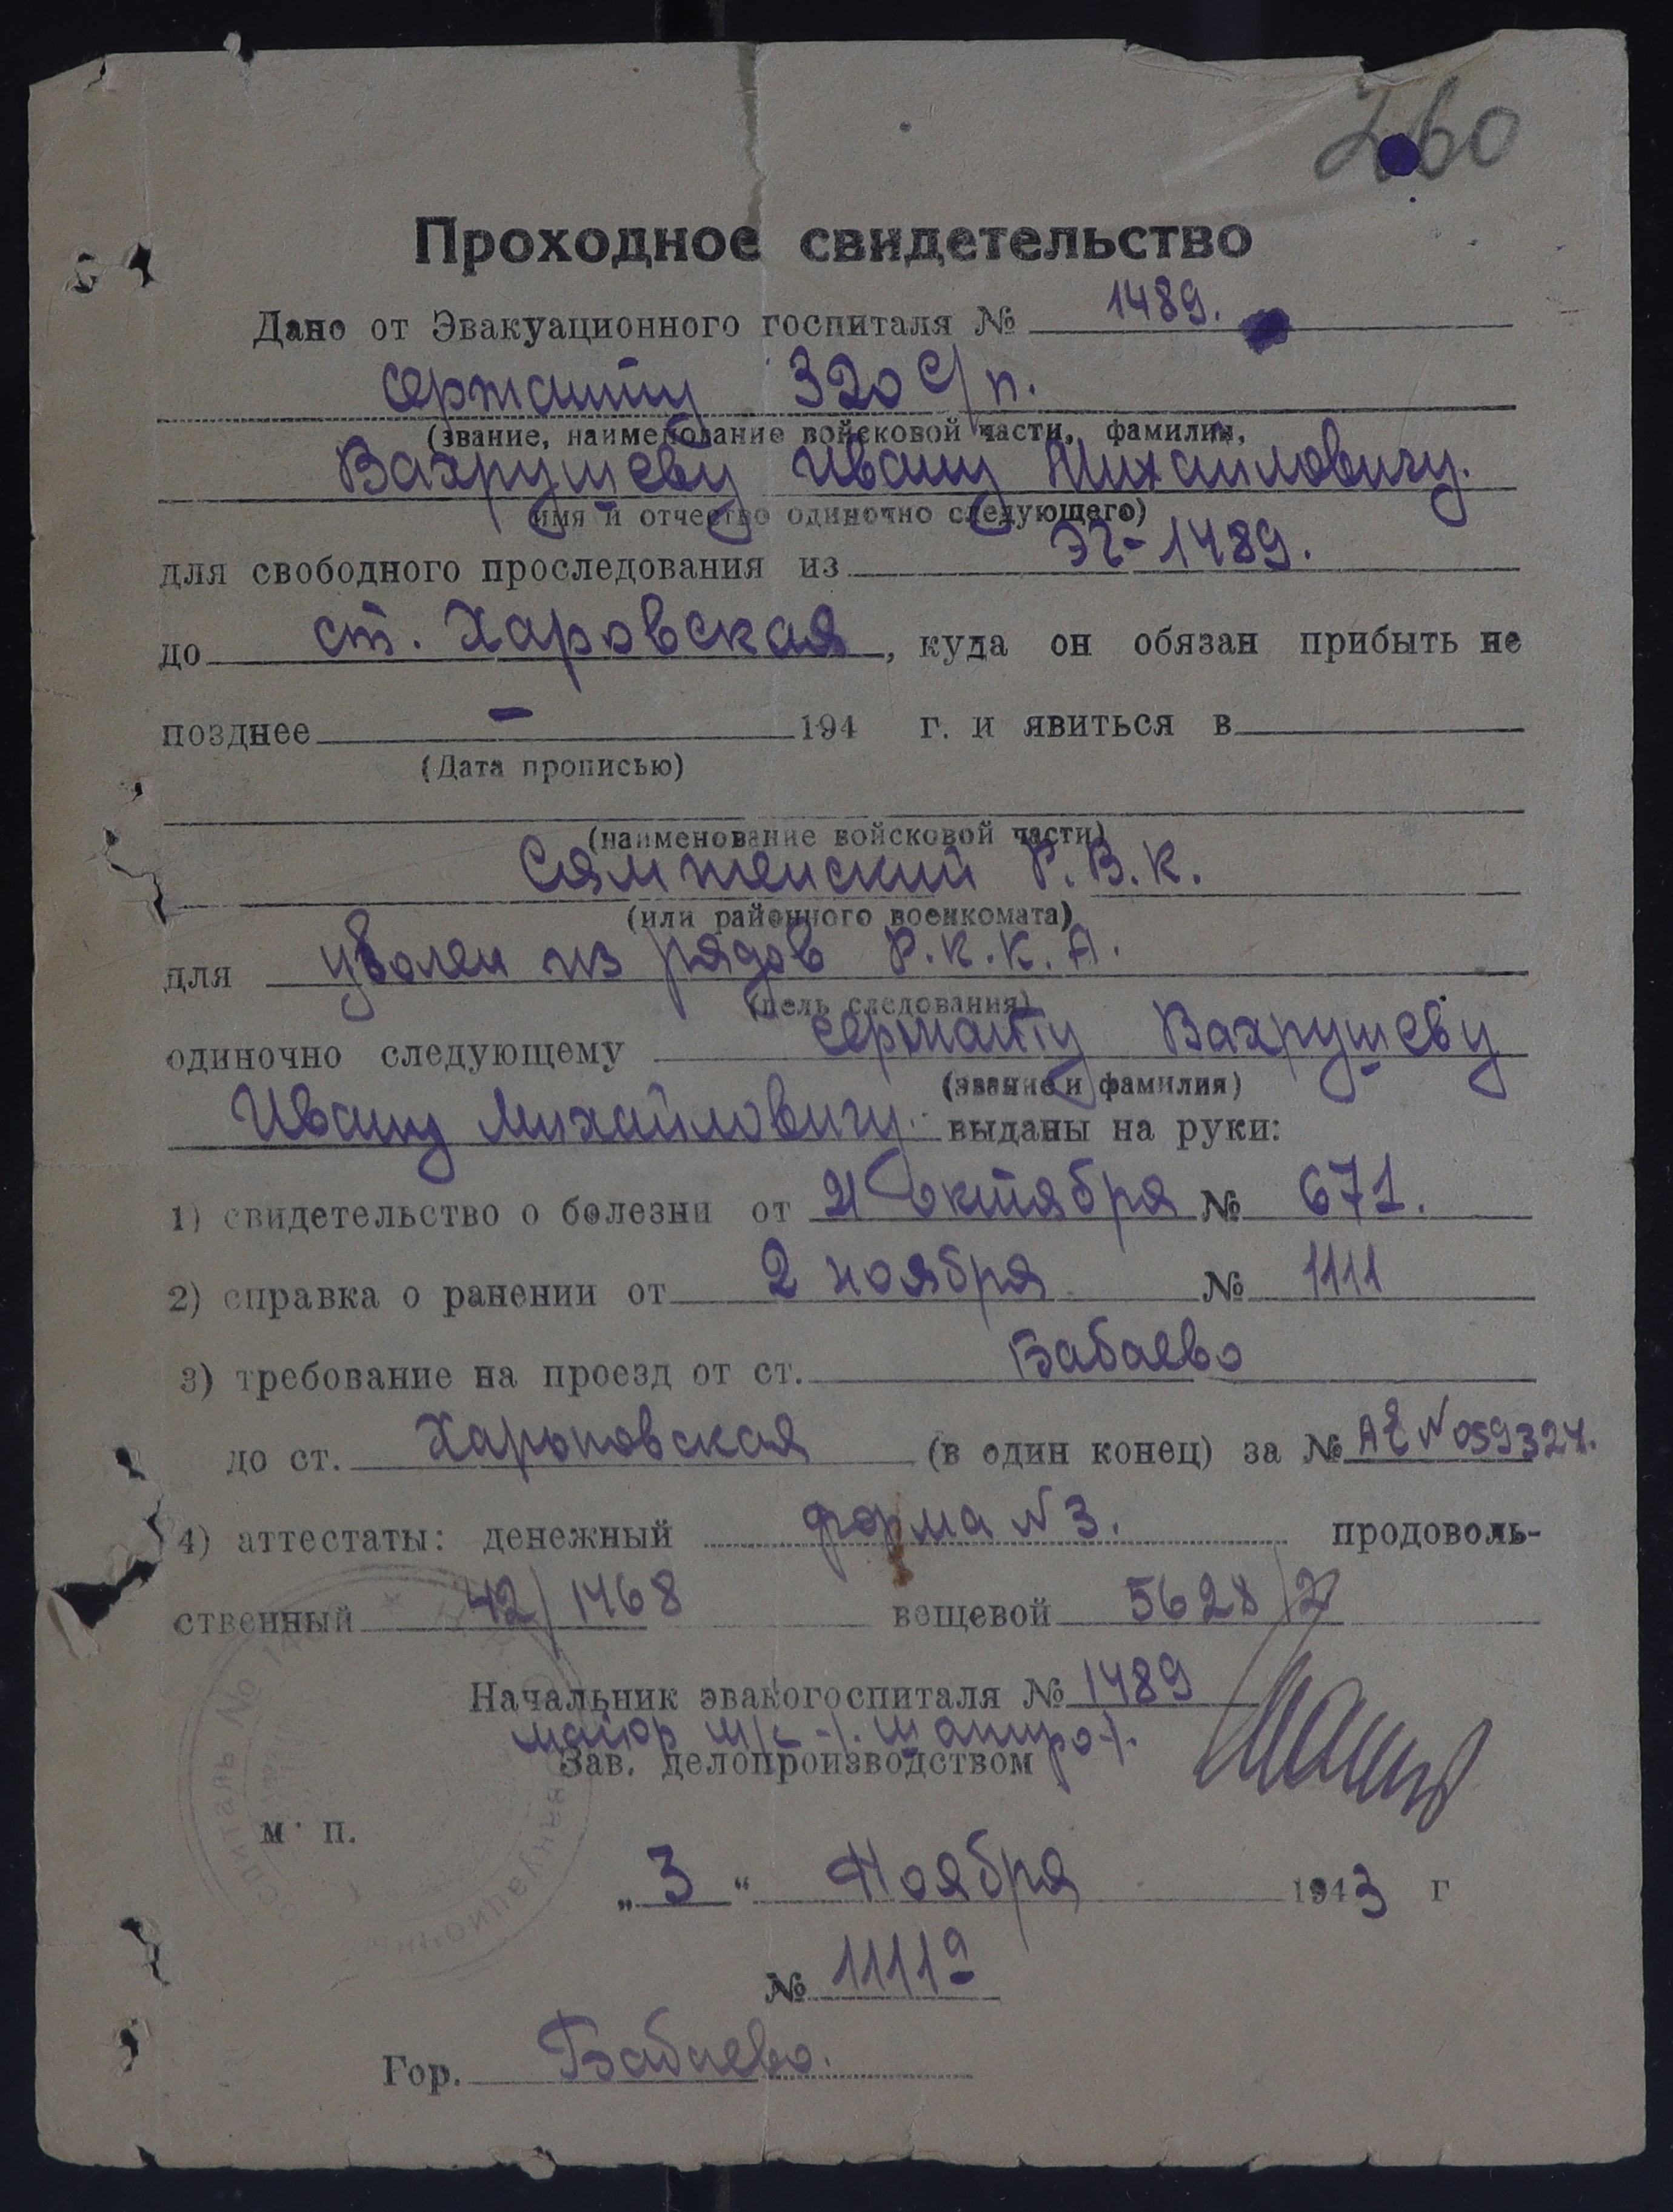 260
Проходное свидетельство
Дано от Эвакуационного госпиталя № 1489.
сержанту 320 с/п.
(звание, наименование войсковой части, фамилия,
Вахрушеву Ивану Михайловичу.
имя и отчество одиночно следующего)
для свободного проследования из ЭГ-1489.
до ст. Харовская, куда он обязан прибыть не
позднее - 194 г. и явиться в
(Дата прописью)
(наименование войсковой части)
Сямженский Р.В.К.
(или районного военкомата)
для уволен из рядов Р.К.К.А.
(цель следования)
одиночно следующему сержанту Вахрушеву
(звание и фамилия)
Ивану Михайловичу. выданы на руки:
1) свидетельство о болезни от 21 октября № 671.
2) справка о ранении от 2 ноября № 1111
3) требование на проезд от ст. Бабаево
до ст. Харповская (в один конец) за № АЕ N 059324.
4) аттестаты: денежный форма N 3. продоволь-
ственный 42/1468 вещевой 5628/27
Начальник эвакогоспиталя № 1489
майор м/с -/. Шапиро -/.
Зав. делопроизводством
м. п.
„3“ Ноября 1943 г
№ 1111а
Гор. Бабаево.